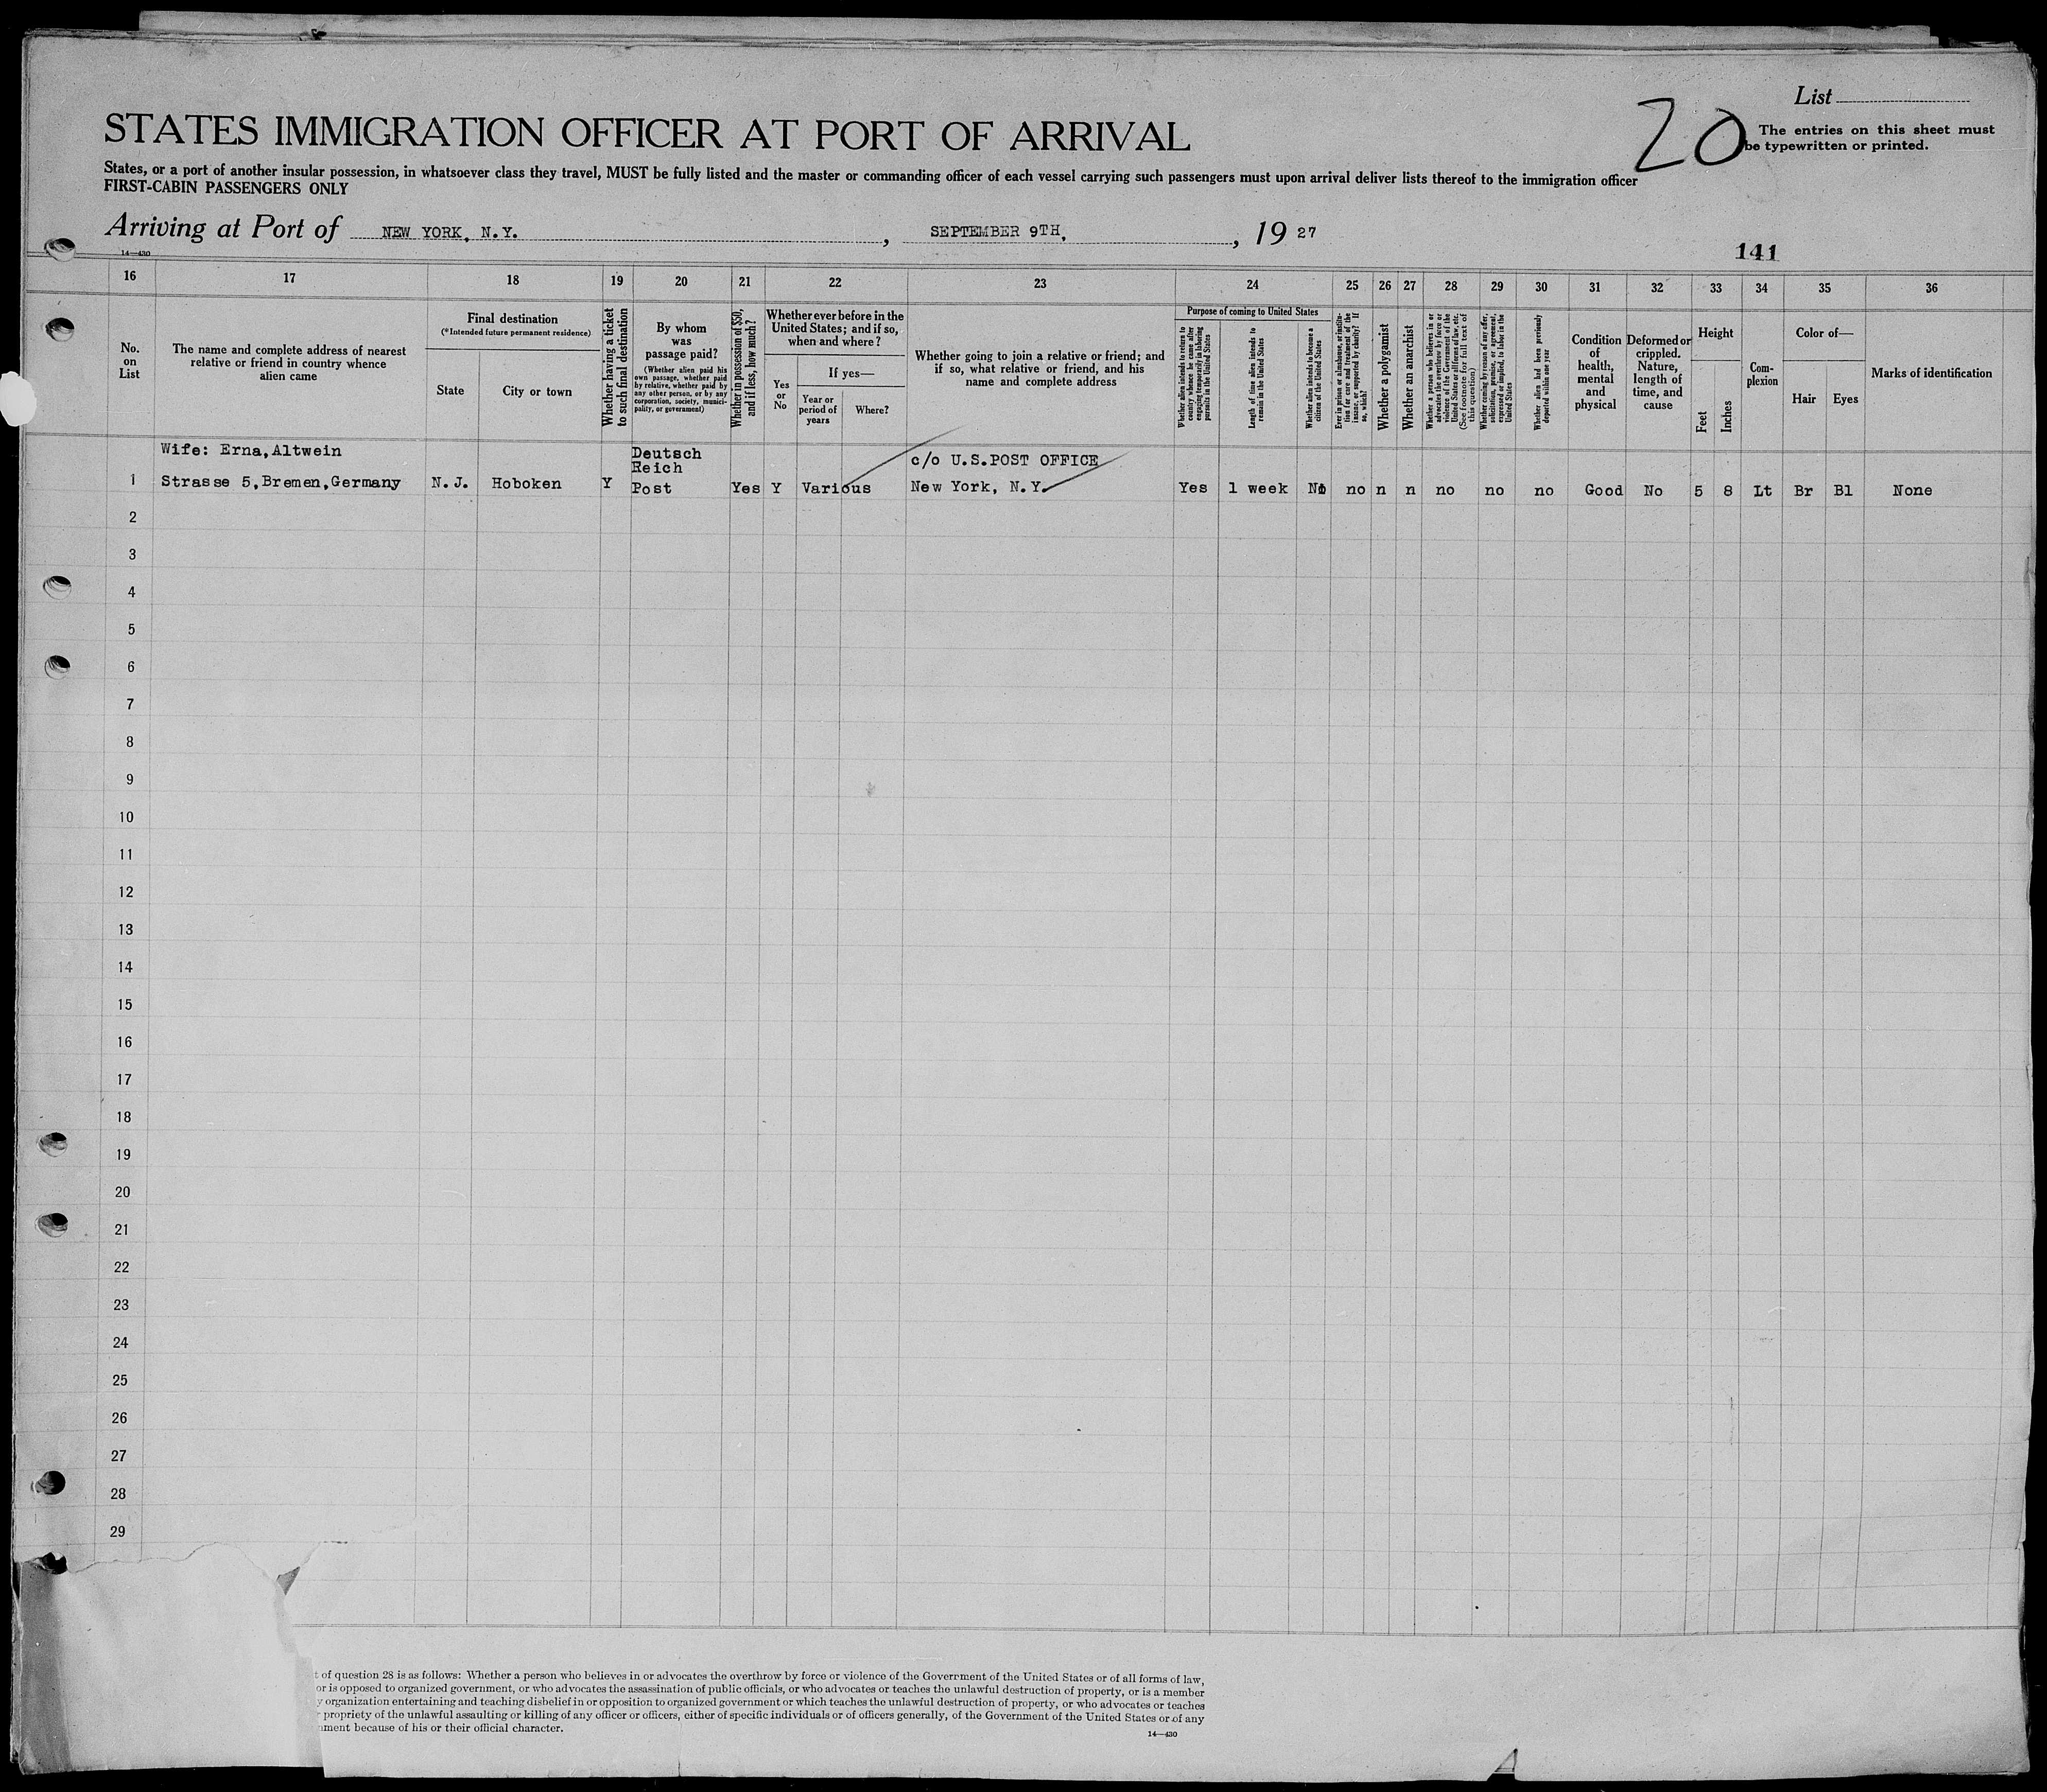 List
20
The entries on this sheet must
be typewritten or printed.
STATES IMMIGRATION OFFICER AT PORT OF ARRIVAL
States, or a port of another insular possession, in whatsoever class they travel, MUST be fully listed and the master or commanding officer of each vessel carrying such passengers must upon arrival deliver lists thereof to the immigration officer
FIRST-CABIN PASSENGERS ONLY
Arriving at Port of NEW YORK, N.Y. , SEPTEMBER 9TH, , 19 27
14—430
141
16 17 18 19 20 21 22 23 24 25 26 27 28 29 30 31 32 33 34 35 36
No.
on
List
The name and complete address of nearest
relative or friend in country whence
alien came
Final destination
(*Intended future permanent residence)
State
City or town
Whether having a ticket
to such final destination
By whom
was
passage paid?
(Whether alien paid his
own passage, whether paid
by relative, whether paid by
any other person, or by any
corporation, society, munici-
pality, or government)
Whether in possession of $50,
and if less, how much?
Whether ever before in the
United States; and if so,
when and where?
Yes
or
No
If yes—
Year or
period of
years
Where?
Whether going to join a relative or friend; and
if so, what relative or friend, and his
name and complete address
Purpose of coming to United States
Whether alien intends to return to
country whence he came after
engaging temporarily in laboring
pursuits in the United States
Length of time alien intends to
remain in the United States
Whether alien intends to become a
citizen of the United States
Ever in prison or almshouse, or institu-
tion for care and treatment of the
insane, or supported by charity? If
so, which?
Whether a polygamist
Whether an anarchist
Whether a person who believes in or
advocates the overthrow by force or
violence of the Government of the
United States or all forms of law, etc.
(See footnote for full text of
this question)
Whether coming by reason of any offer,
solicitation, promise, or agreement,
expressed or implied, to labor in the
United States
Whether alien had been previously
deported within one year
Condition
of
health,
mental
and
physical
Deformed or
crippled.
Nature,
length of
time, and
cause
Height
Feet
Inches
Com-
plexion
Color of—
Hair
Eyes
Marks of identification
Wife: Erna, Altwein
Deutsch
Reich
c/o U.S.POST OFFICE
1 Strasse 5, Bremen, Germany N.J. Hoboken Y Post Yes Y Various New York, N.Y. Yes 1 week No no n n no no no Good No 5 8 Lt Br Bl None
2
3
4
5
6
7
8
9
10
11
12
13
14
15
16
17
18
19
20
21
22
23
24
25
26
27
28
29
t of question 28 is as follows: Whether a person who believes in or advocates the overthrow by force or violence of the Government of the United States or of all forms of law,
or is opposed to organized government, or who advocates the assassination of public officials, or who advocates or teaches the unlawful destruction of property, or is a member
y organization entertaining and teaching disbelief in or opposition to organized government or which teaches the unlawful destruction of property, or who advocates or teaches
r propriety of the unlawful assaulting or killing of any officer or officers, either of specific individuals or of officers generally, of the Government of the United States or of any
nment because of his or their official character.
14—430